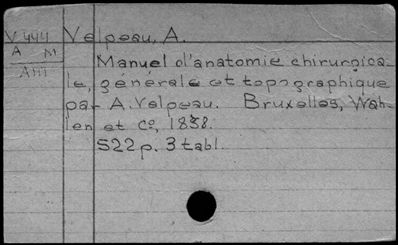 V 444 Velpeau, A.
A M Manuel d'anatomie chirurgica-
A III le, générale et topographique
par A. Velpeau. Bruxelles, Wah-
len et Co, 1838.
522 p. 3 tabl.